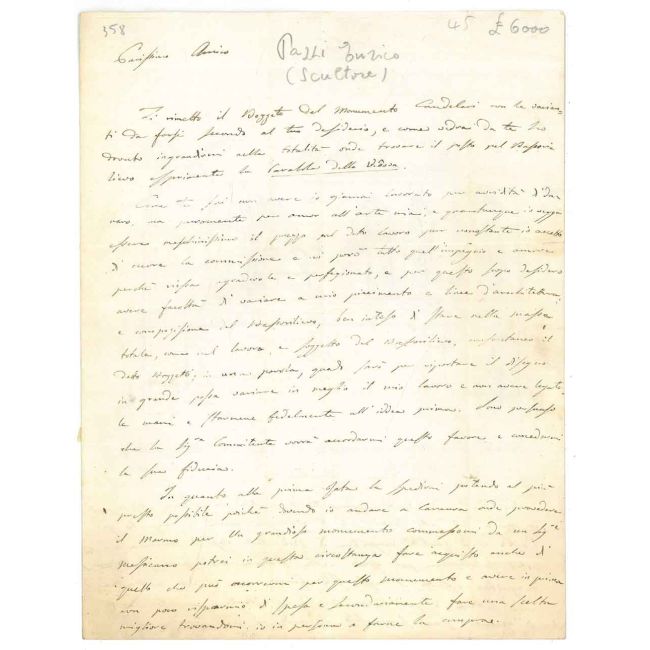 358
45 £ 6000
Carissimo Amico
Pazzi Enrico
(Scultore)
Ti rimetto il Bozzetto del Monumento Candelari con le varian-
ti da farsi secondo al tuo desiderio, e come vedrai da te ho
dovuto ingrandirmi nella totalità onde trovare il posto pel Bassori-
lievo esprimente la Carità della Vedova.
non avere io giammai lavorato per avidità d'da-
naro, ma puramente per amor all'arte mia; e quantunque io vegga
essere meschinissimo il prezzo pel detto lavoro pur nonostante io accetto
di cuore la commissione e vi porrò tutto quell'impegno e amore
perchè riesca gradevole e perfezionato, e per questo scopo desidero
avere facoltà di variare a mio piacimento e linee d'architettura,
e composizione del Bassorilievo, ben inteso di stare nella massa
totale, come nel lavoro, e soggetto del Bassorilievo, il
detto Bozzetto; in una parola, quando sarò per riportare il disegno
in grande possa variare in meglio il mio lavoro e non avere legate
le mani e starmene fedelmente all'idea prima. Sono persuaso
che la Sig.ra Committente vorrà accordarmi questo favore e concedermi
la sua fiducia.
In quanto alla prima rata la spedirai potendo al più
presto possibile poichè dovendo io andare a Carrara onde provvedere
il Marmo per un grandioso monumento commessomi da un Sig.re
messicano potrei in questa circostanza fare acquisto anche di
quello che può occorrermi per questo monumento e avere in prima
con poco risparmio di spesa e secondariamente, fare una scelta
migliore trovandomi io in persona a farne la compra.